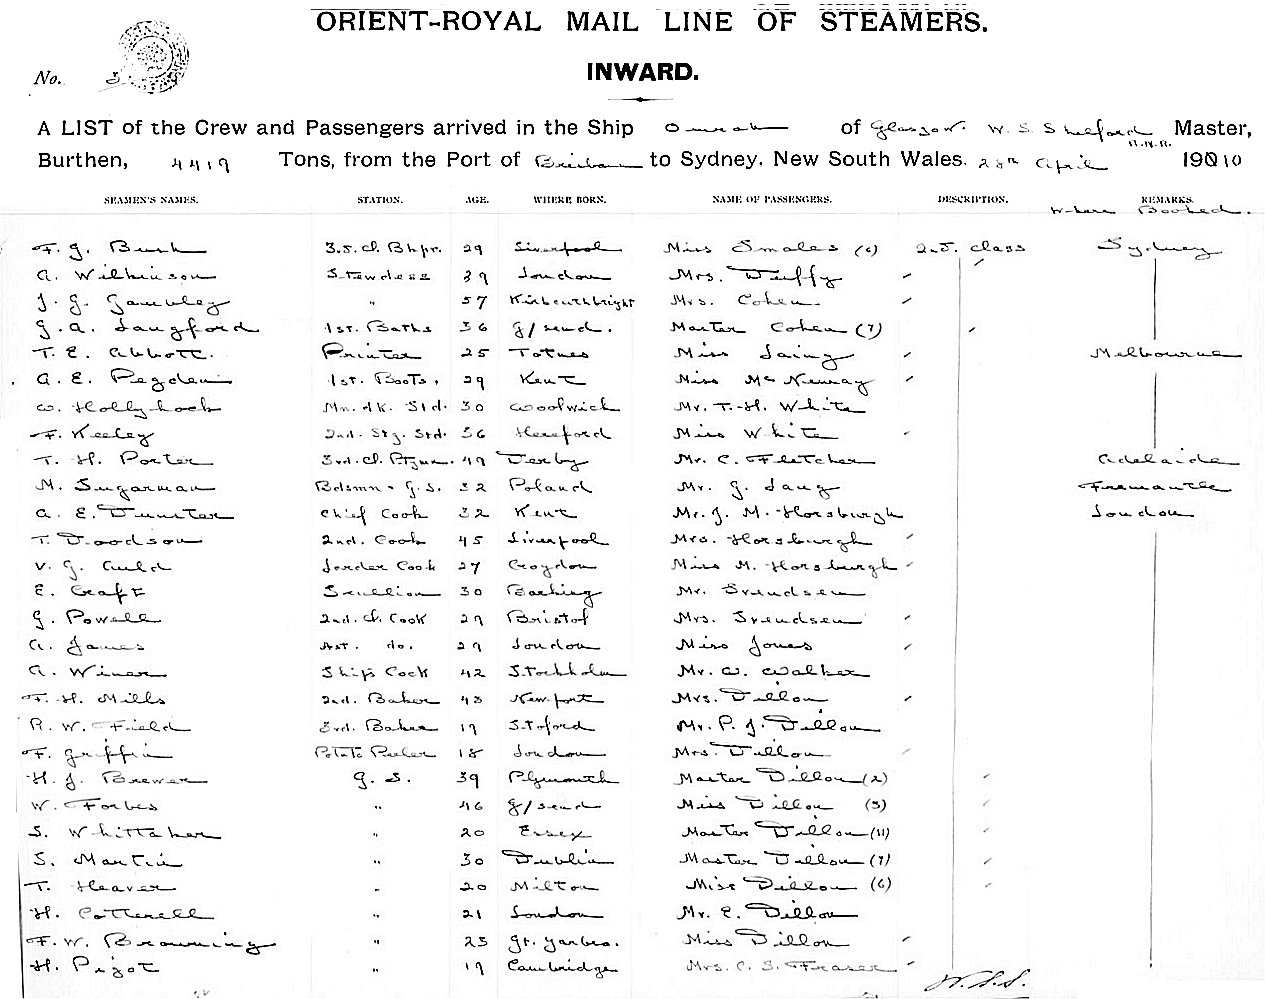 ORIENT-ROYAL MAIL LINE OF STEAMERS.
No. 3
INWARD.
A LIST of the Crew and Passengers arrived in the Ship Omrah of Glasgow. W. S. Shelford R.N.R. Master,
Burthen, 4419 Tons, from the Port of Brisbane to Sydney, New South Wales. 28th April 1910
SEAMEN'S NAMES. STATION. AGE. WHERE BORN. NAME OF PASSENGERS. DESCRIPTION. REMARKS.
Where Booked.
F. J. Bush 3.S. Cl. Bkpr. 29 Liverpool Miss Smales (6) 2nd. Class Sydney
A. Wilkinson Stewdess 39 London Mrs. Duffy
J. G. Gambley " 57 Kirkcudbright Mrs. Cohen
G. A. Langford 1st. Baths 36 G/send. Master Cohen (7)
T. E. Abbott. Printer 25 Totnes Miss Laing Melbourne
A. E. Pegden 1st. Boots. 29 Kent Miss McNeway
W. Hollyhock Mn. dk. Std. 30 Woolwich Mr. T. H. White
F. Keeley 2nd. Stg. Std. 36 Hereford Miss White
T. H. Porter 3rd. Cl. 49 Derby Mr. C. Fletcher Adelaide
M. Sugarman Bdsmn. G.S. 32 Poland Mr. G. Lang Fremantle
A. E. Dunster Chief Cook 32 Kent Mr. J. M. Horsburgh London
T. Doodson 2nd. Cook 45 Liverpool Mrs. Horsburgh
V. G. Auld Larder Cook 27 Croydon Miss M. Horsburgh
E. Craft Scullion 30 Barking Mr. Svendsen
G. Powell 2nd. Cl. Cook 29 Bristol Mrs. Svendsen
A. James Ast. do. 29 London Miss Jones
A. Winer Ship's Cook 42 Stockholm Mr. W. Walker
F. H. Mills 2nd. Baker 43 Newport Mrs. Dillon
R. W. Field 3rd. Baker 19 Stoford Mr. P. J. Dillon
F. Griffin Potato Peeler 18 London Mrs. Dillon
H. J. Brewer G. S. 39 Plymouth Master Dillon (2)
W. Forbes " 46 G/send Miss Dillon (3)
S. Whittaker " 20 Essex Master Dillon (11)
S. Martin " 30 Dublin Master Dillon (7)
T. Heaver " 20 Milton Miss Dillon (6)
H. Cotterell " 21 London Mr. E. Dillon
F. W. Browning " 23 Gt. Yarbro. Miss Dillon
H. Pigot " 19 Cambridge Mrs. C. S. Fraser
W.S.S.